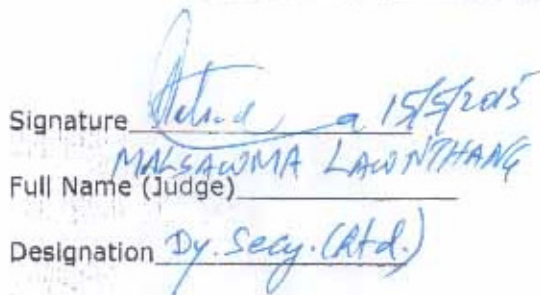 Signature 15/5/2015
MALSAWMA LAWNTHANG
Full Name (Judge)
Designation Dy. Secy. (Rtd.)